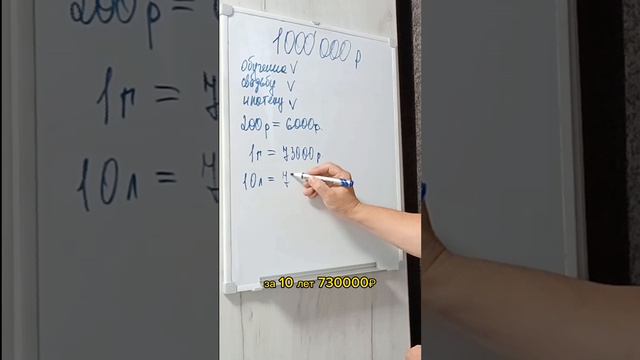 1000'000 р
обучение V
свадьбу V
ипотеку V
200 р = 6000 р.
1 г = 73000 р
10 л = 7
за 10 лет 730000₽